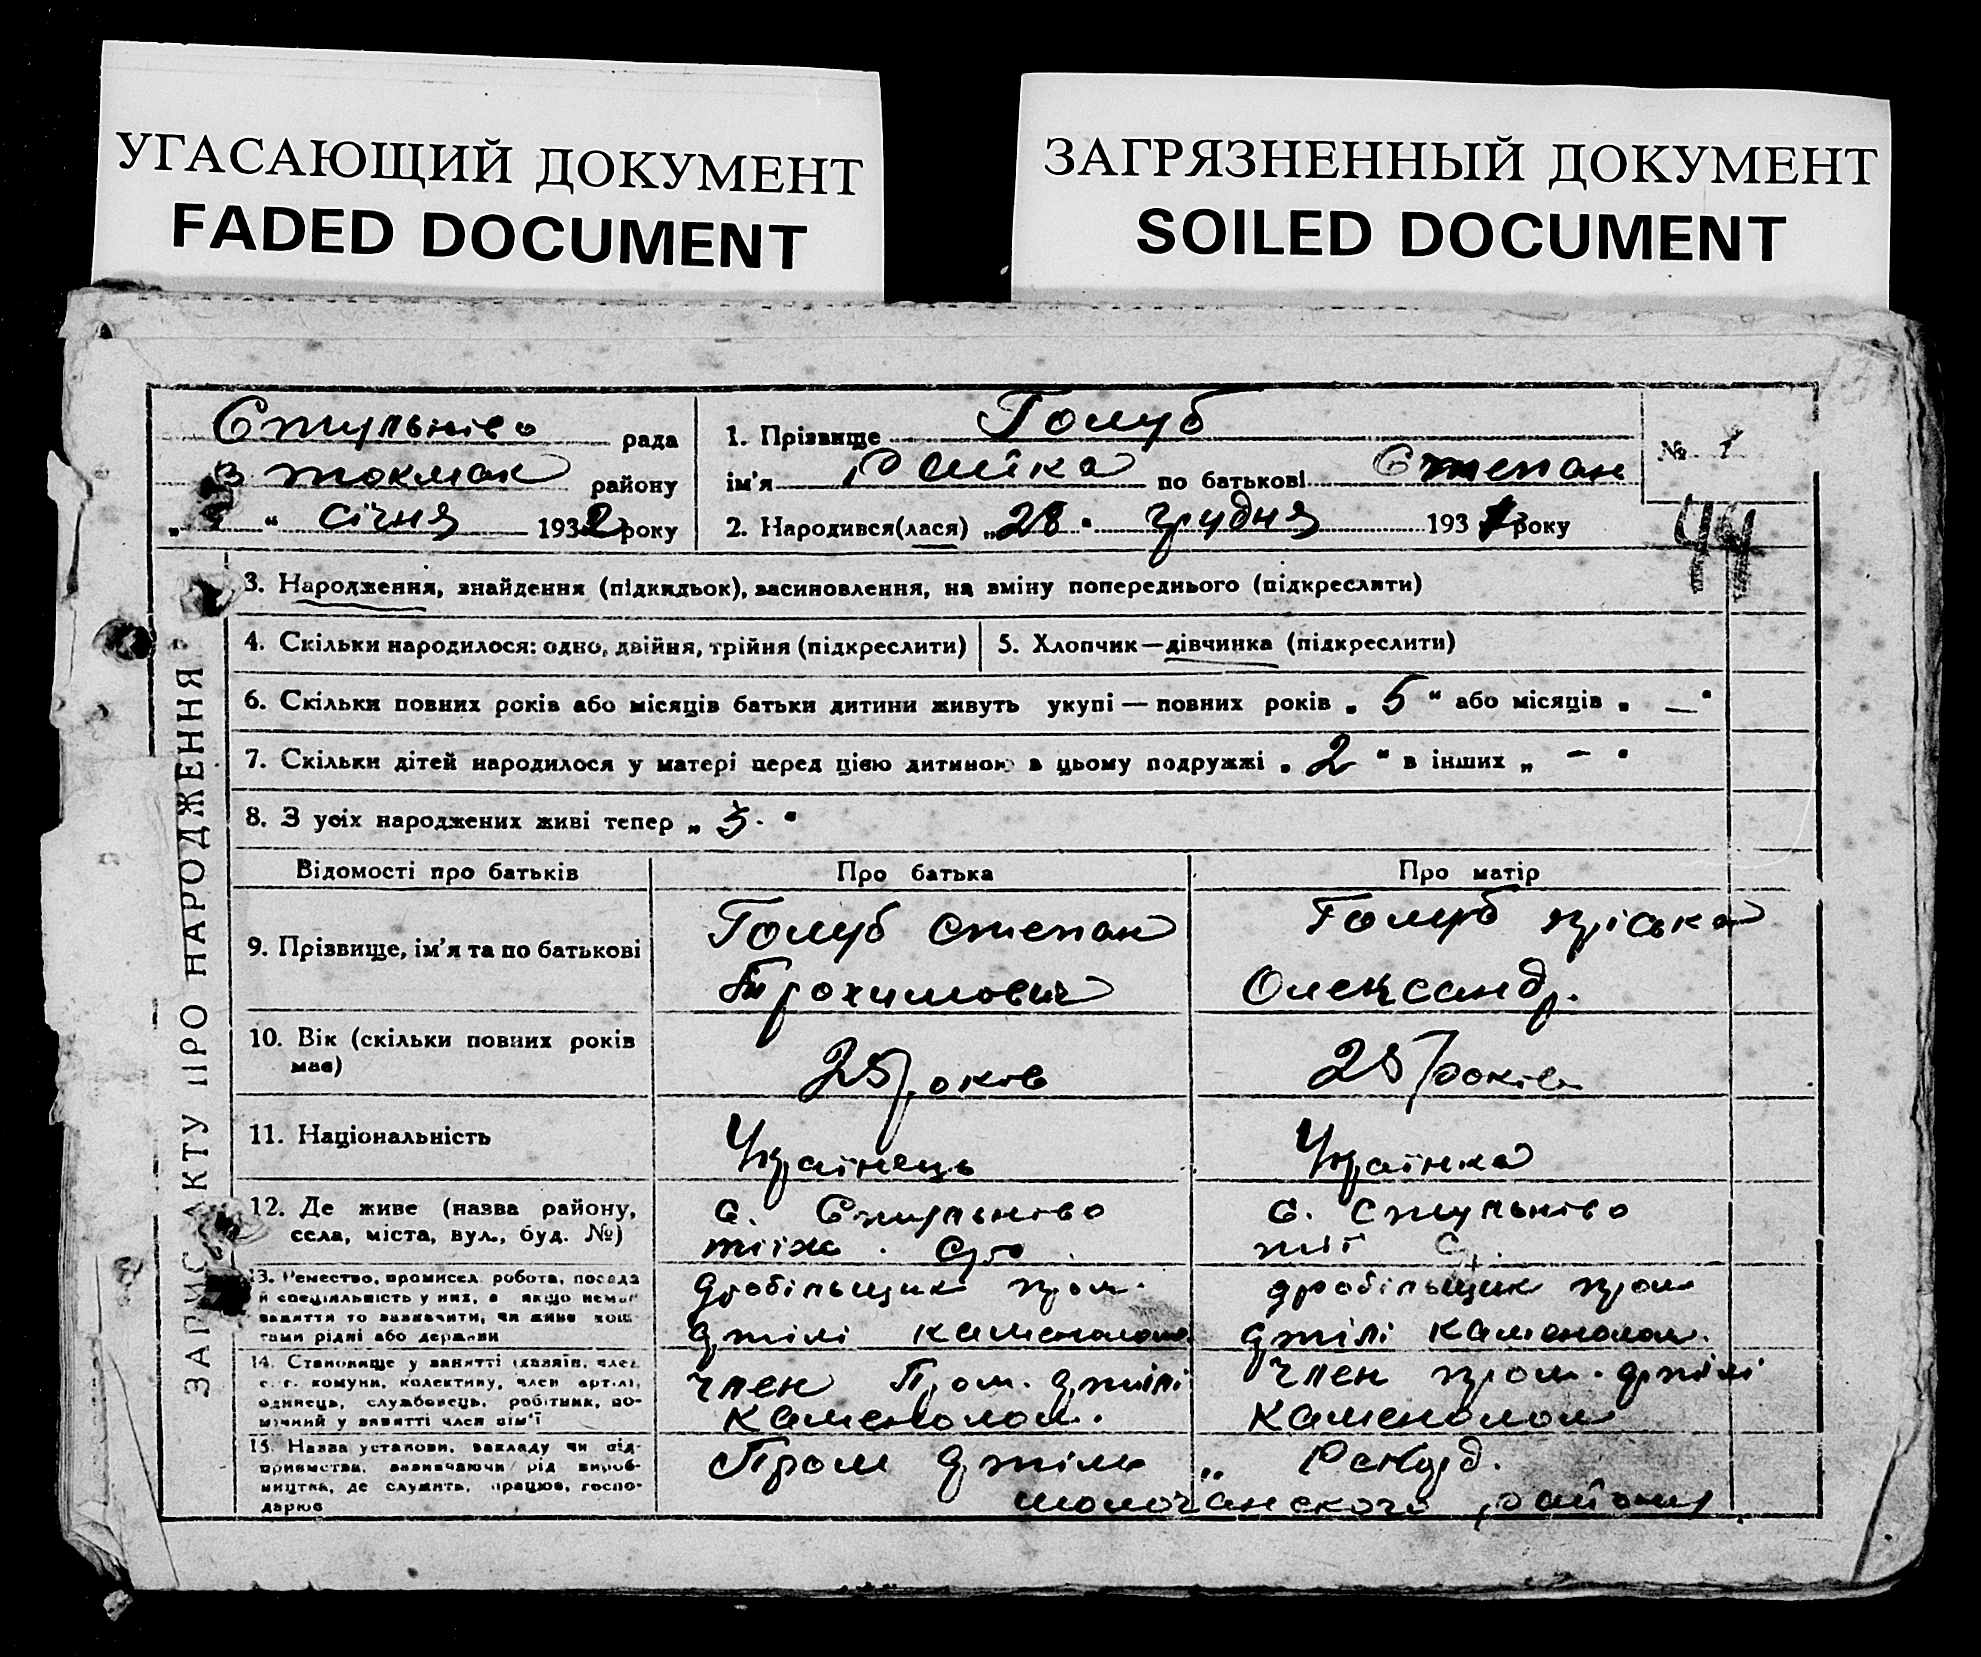 УГАСАЮЩИЙ ДОКУМЕНТ
FADED DOCUMENT
ЗАГРЯЗНЕННЫЙ ДОКУМЕНТ
SOILED DOCUMENT
Стульнево рада
В Токмак району
" " січня 1932 року
1. Прізвище Голуб
ім'я Раїйка по батькові Степан
2. Народився(лася) „28" грудня 1931 року
№ 1
44
ЗАПИС АКТУ ПРО НАРОДЖЕННЯ
3. Народження, знайдення (підкидьок), засиновлення, на зміну попереднього (підкреслити)
4. Скільки народилося: одно, двійня, трійня (підкреслити)
5. Хлопчик—дівчинка (підкреслити)
6. Скільки повних років або місяців батьки дитини живуть укупі — повних років „5" або місяців „—"
7. Скільки дітей народилося у матері перед цією дитиною в цьому подружжі „2" в інших „–"
8. З усіх народжених живі тепер „3."
Відомості про батьків Про батька Про матір
9. Прізвище, ім'я та по батькові
Голуб Степан
Трохимович
Голуб Пріська
Олександр.
10. Вік (скільки повних років
має)
25 років
25 років
11. Національність
Українець
Українка
12. Де живе (назва району,
села, міста, вул., буд. №)
с. Стульнево
с. Стульнево
13. Ремество, промисел, робота, посада
й спеціяльність у них, а якщо немає
заняття то зазначити, чи живе кош
тами рідні або держави
дробільщик пром
артілі каменолом
дробільщик пром
артілі каменолом.
14. Становище у занятті (хазяїн, член
с.-г. комуни, колективу, член артілі,
одинець, службовець, робітник, по-
мічний у занятті член сім'ї
член Пром. артілі
каменолом.
член пром. артілі
каменолом
15. Назва установи, закладу чи під-
приємства, зазначаючи рід вироб-
ництва, де служить, працює, госпо-
дарює
Пром артіль „ Рекорд.
молочанского району